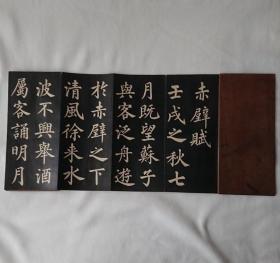 赤壁賦
壬戌之秋七
月既望蘇子
與客泛舟遊
於赤壁之下
清風徐来水
波不興舉酒
屬客誦明月